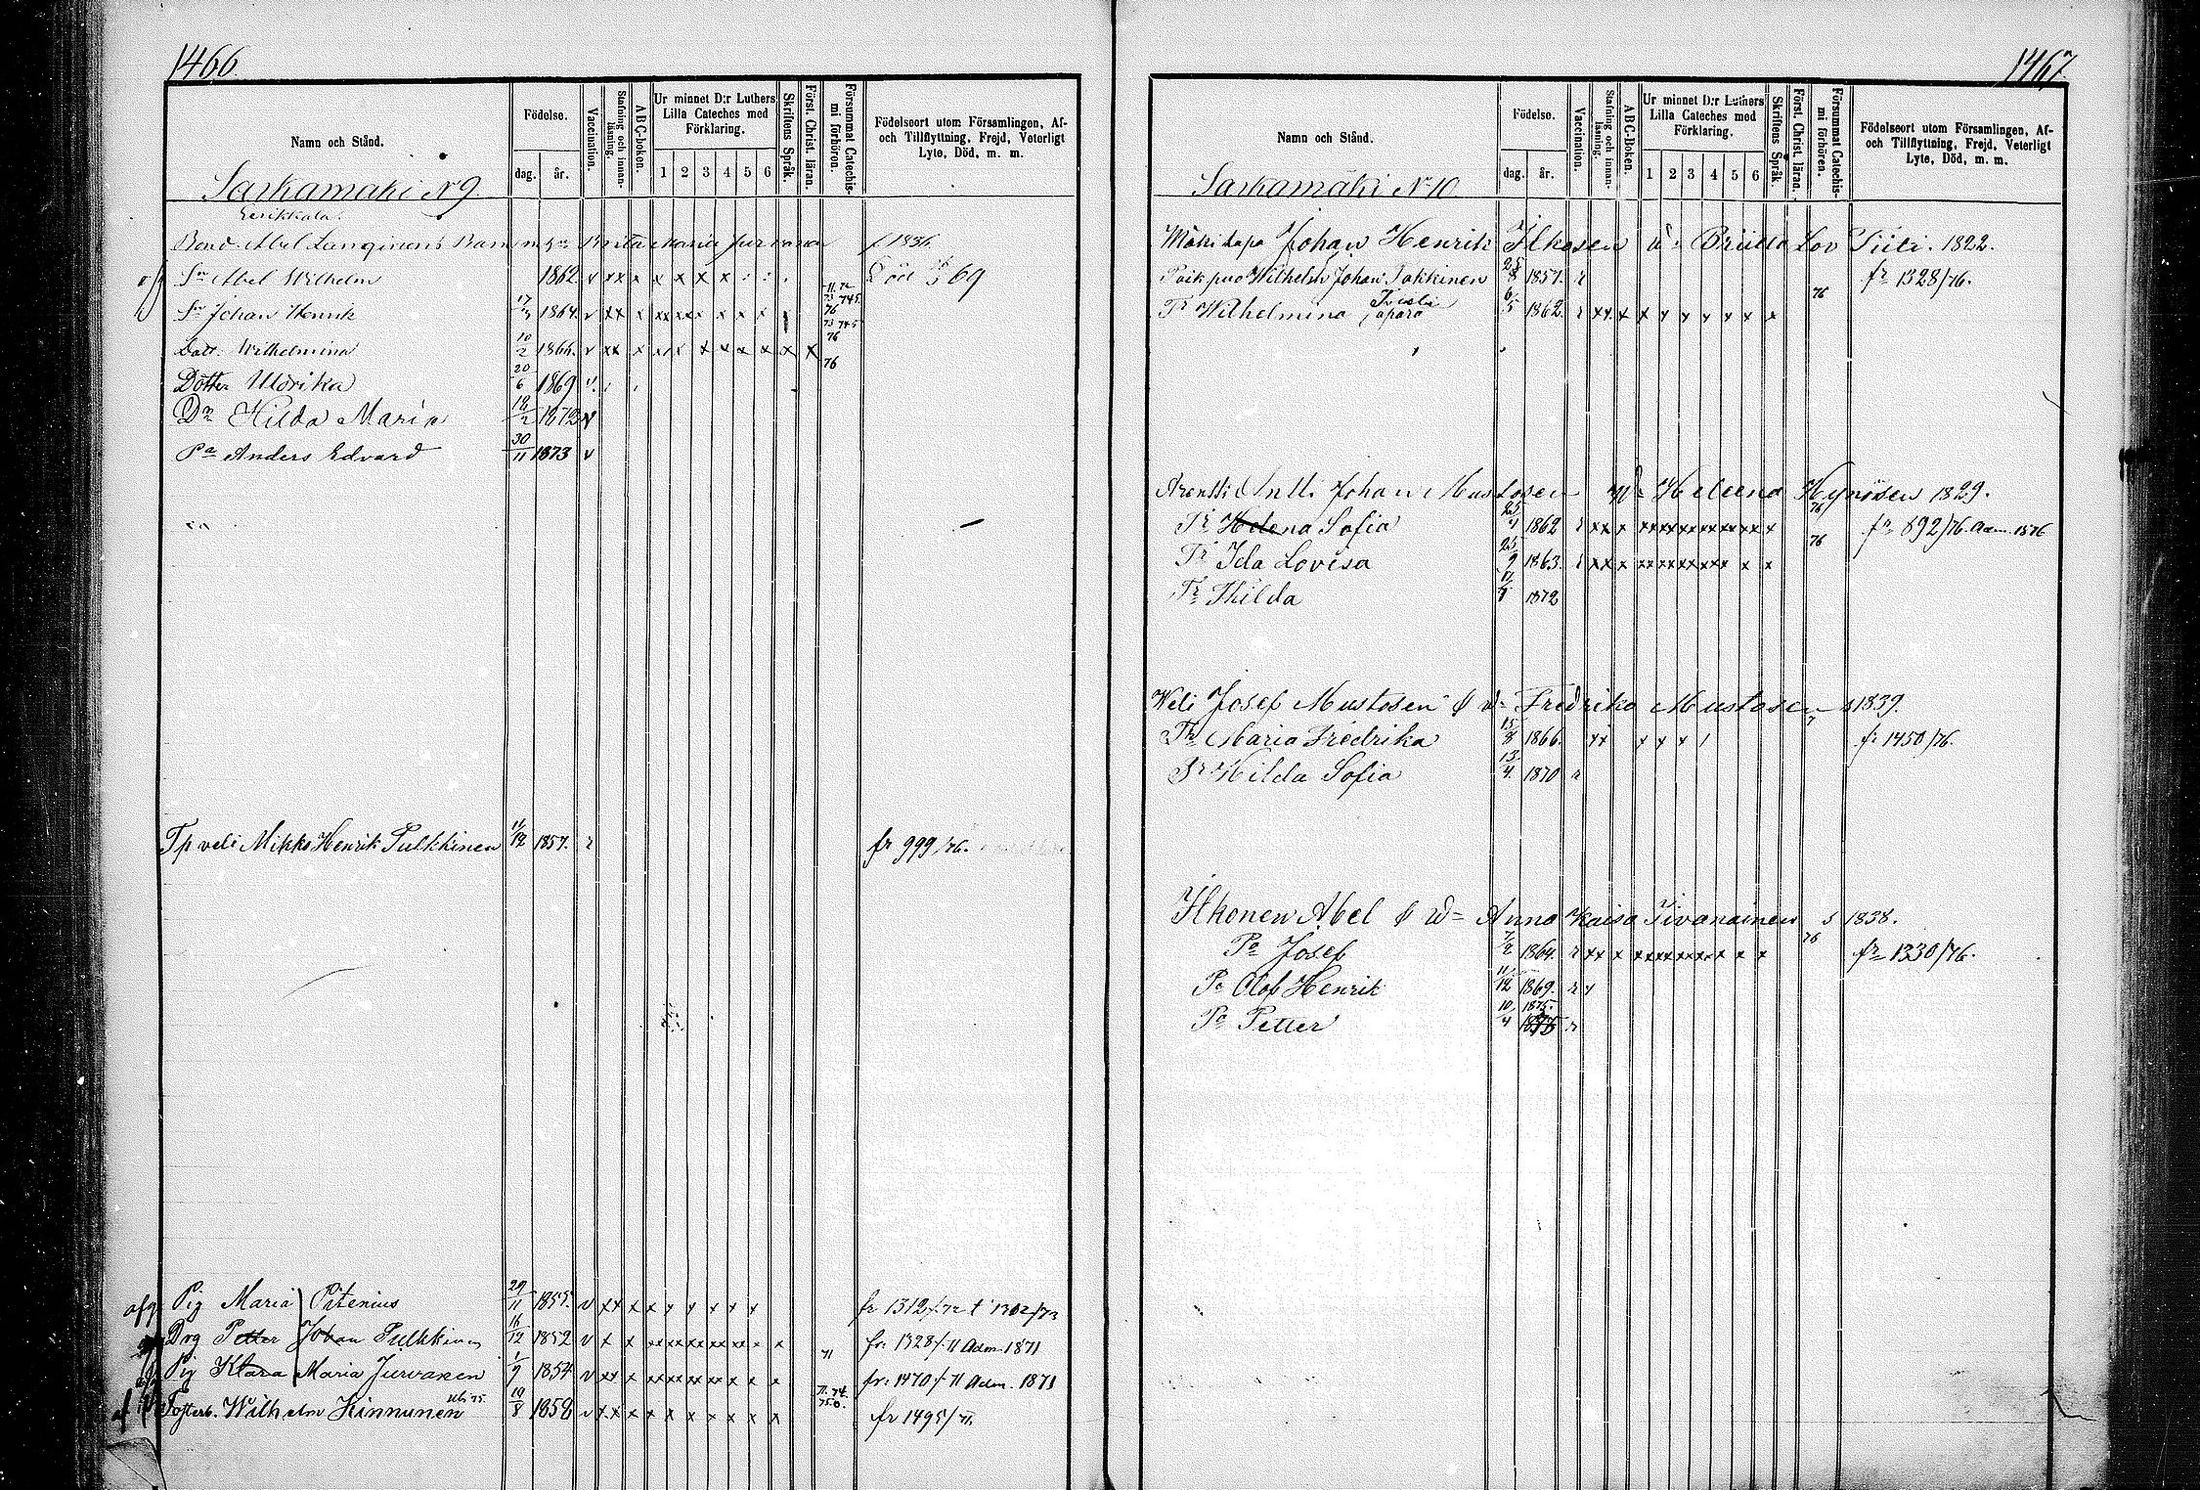 1466.
Namn och Stånd.
Födelse.
dag. år.
Vaccination.
Stafning och innanläsning.
ABC-boken.
Ur minnet D:r Luthers Lilla Cateches med Förklaring.
1 2 3 4 5 6
Skriftens Språk.
Först. Christ. läran.
Försummat Catechismi förhören.
Födelseort utom Församlingen, Af- och Tillflyttning, Frejd, Veterligt Lyte, Död, m. m.
Sarkamäki N 9.
Bond. Abel Brita Maria f 1836.
Sn Abel Wilhelm 1862 v xx x x x x x Död 69
Sn Johan Henrik 17/3 1864. v xx x xx xx x x x x 73 745 76
Dott. Wilhelmina 10/2 1866. v xx x x x x x x x x x 73 745 76
Dotter Uldrika 20/6 1869 v 76
Dr Hilda Maria 12/2 1872 v
Pa Anders Edvard 30/11 1873 v
Tp veli Mikko Henrik Pulkkinen 11/12 1857. r fr 999/76.
Pig Maria Patenius 29/11 1855. v xx x x x x x x x fr 1312/72 t 1302/73
Drg Petter Johan Pulkkinen 16/12 1852 v x x xx xx xx xx x x x 71 fr. 1328/71 Adm. 1871
Pig Klara Maria Jurvanen 1/9 1854 v xx x xx xx xx x x x fr. 1470/71 Adm. 1871
Fosters. Wilhelm Kinnunen 19/8 1858 v xx x x x x x x x x 71. 74. 75 fr 1495/71.
1467.
Namn och Stånd.
Födelse.
dag. år.
Vaccination.
Stafning och innanläsning.
ABC-Boken.
Ur minnet D:r Luthers Lilla Cateches med Förklaring.
1 2 3 4 5 6
Skriftens Språk.
Först. Christ. läran.
Försummat Catechismi förhören.
Födelseort utom Församlingen, Af- och Tillflyttning, Frejd, Veterligt Lyte, Död, m. m.
Sarkamäki N 10.
Mökitapa Johan Henrik Ilkosen v: Briitta Lov Siiti. 1822.
Poik puo Wilhelm Johan Pakkinen 25/8 1857. r fr 1328/76.
Tr Wilhelmina 6/5 1862. r xx x x x x x x x x 76
Arentti Antti Johan Mustosen v Heleena Hynöisen 1829.
Tr Helena Sofia 25/4 1862 r xx x xx xx xx xx xx x x 76 fr 892/76. Adm. 1876
Tr Ida Lovisa 25/9 1863. r xx x xx xx xx xx x x x 76
Tr Thilda 1872
Weli Josef Mustosen & v: Fredrika Mustosen s 1839.
Tr Maria Fredrika 15/8 1866. xx x x x fr 1450/76.
Tr Hilda Sofia 13/4. 1870 r
Ilkonen Abel & v= Anna Kaisa Tivanainen s 1838.
Pa Josef 7/2 1864. r xx x xx xx xx xx x x 76 fr 1330/76.
Pa Olof Henrik 11/12 1869. r x
Pa Petter 10/4 1875. r